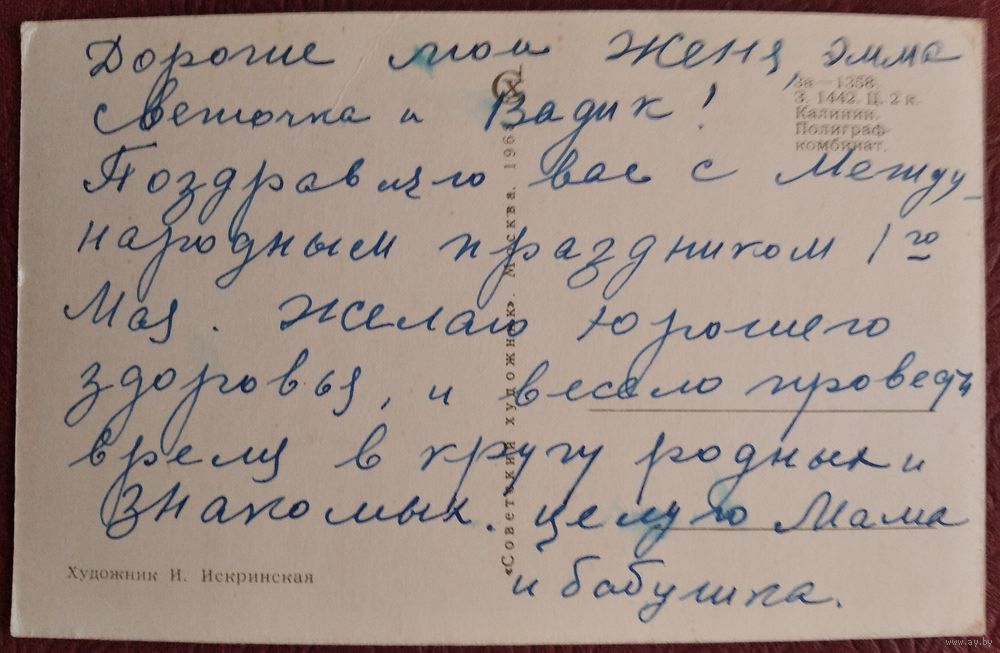 Дорогие мои Женя, Эмма
Светочка и Вадик!
Поздравляю вас с Между-
народным праздником 1го
Мая. Желаю хорошего
здоровья, и весело провести
время в кругу родных и
знакомых. Целую Мама
и бабушка.
за—1358.
З. 1442. Ц. 2 к.
Калинин.
Полиграф-
комбинат.
«Советский художник». Москва. 196
Художник И. Искринская
www.ay.by